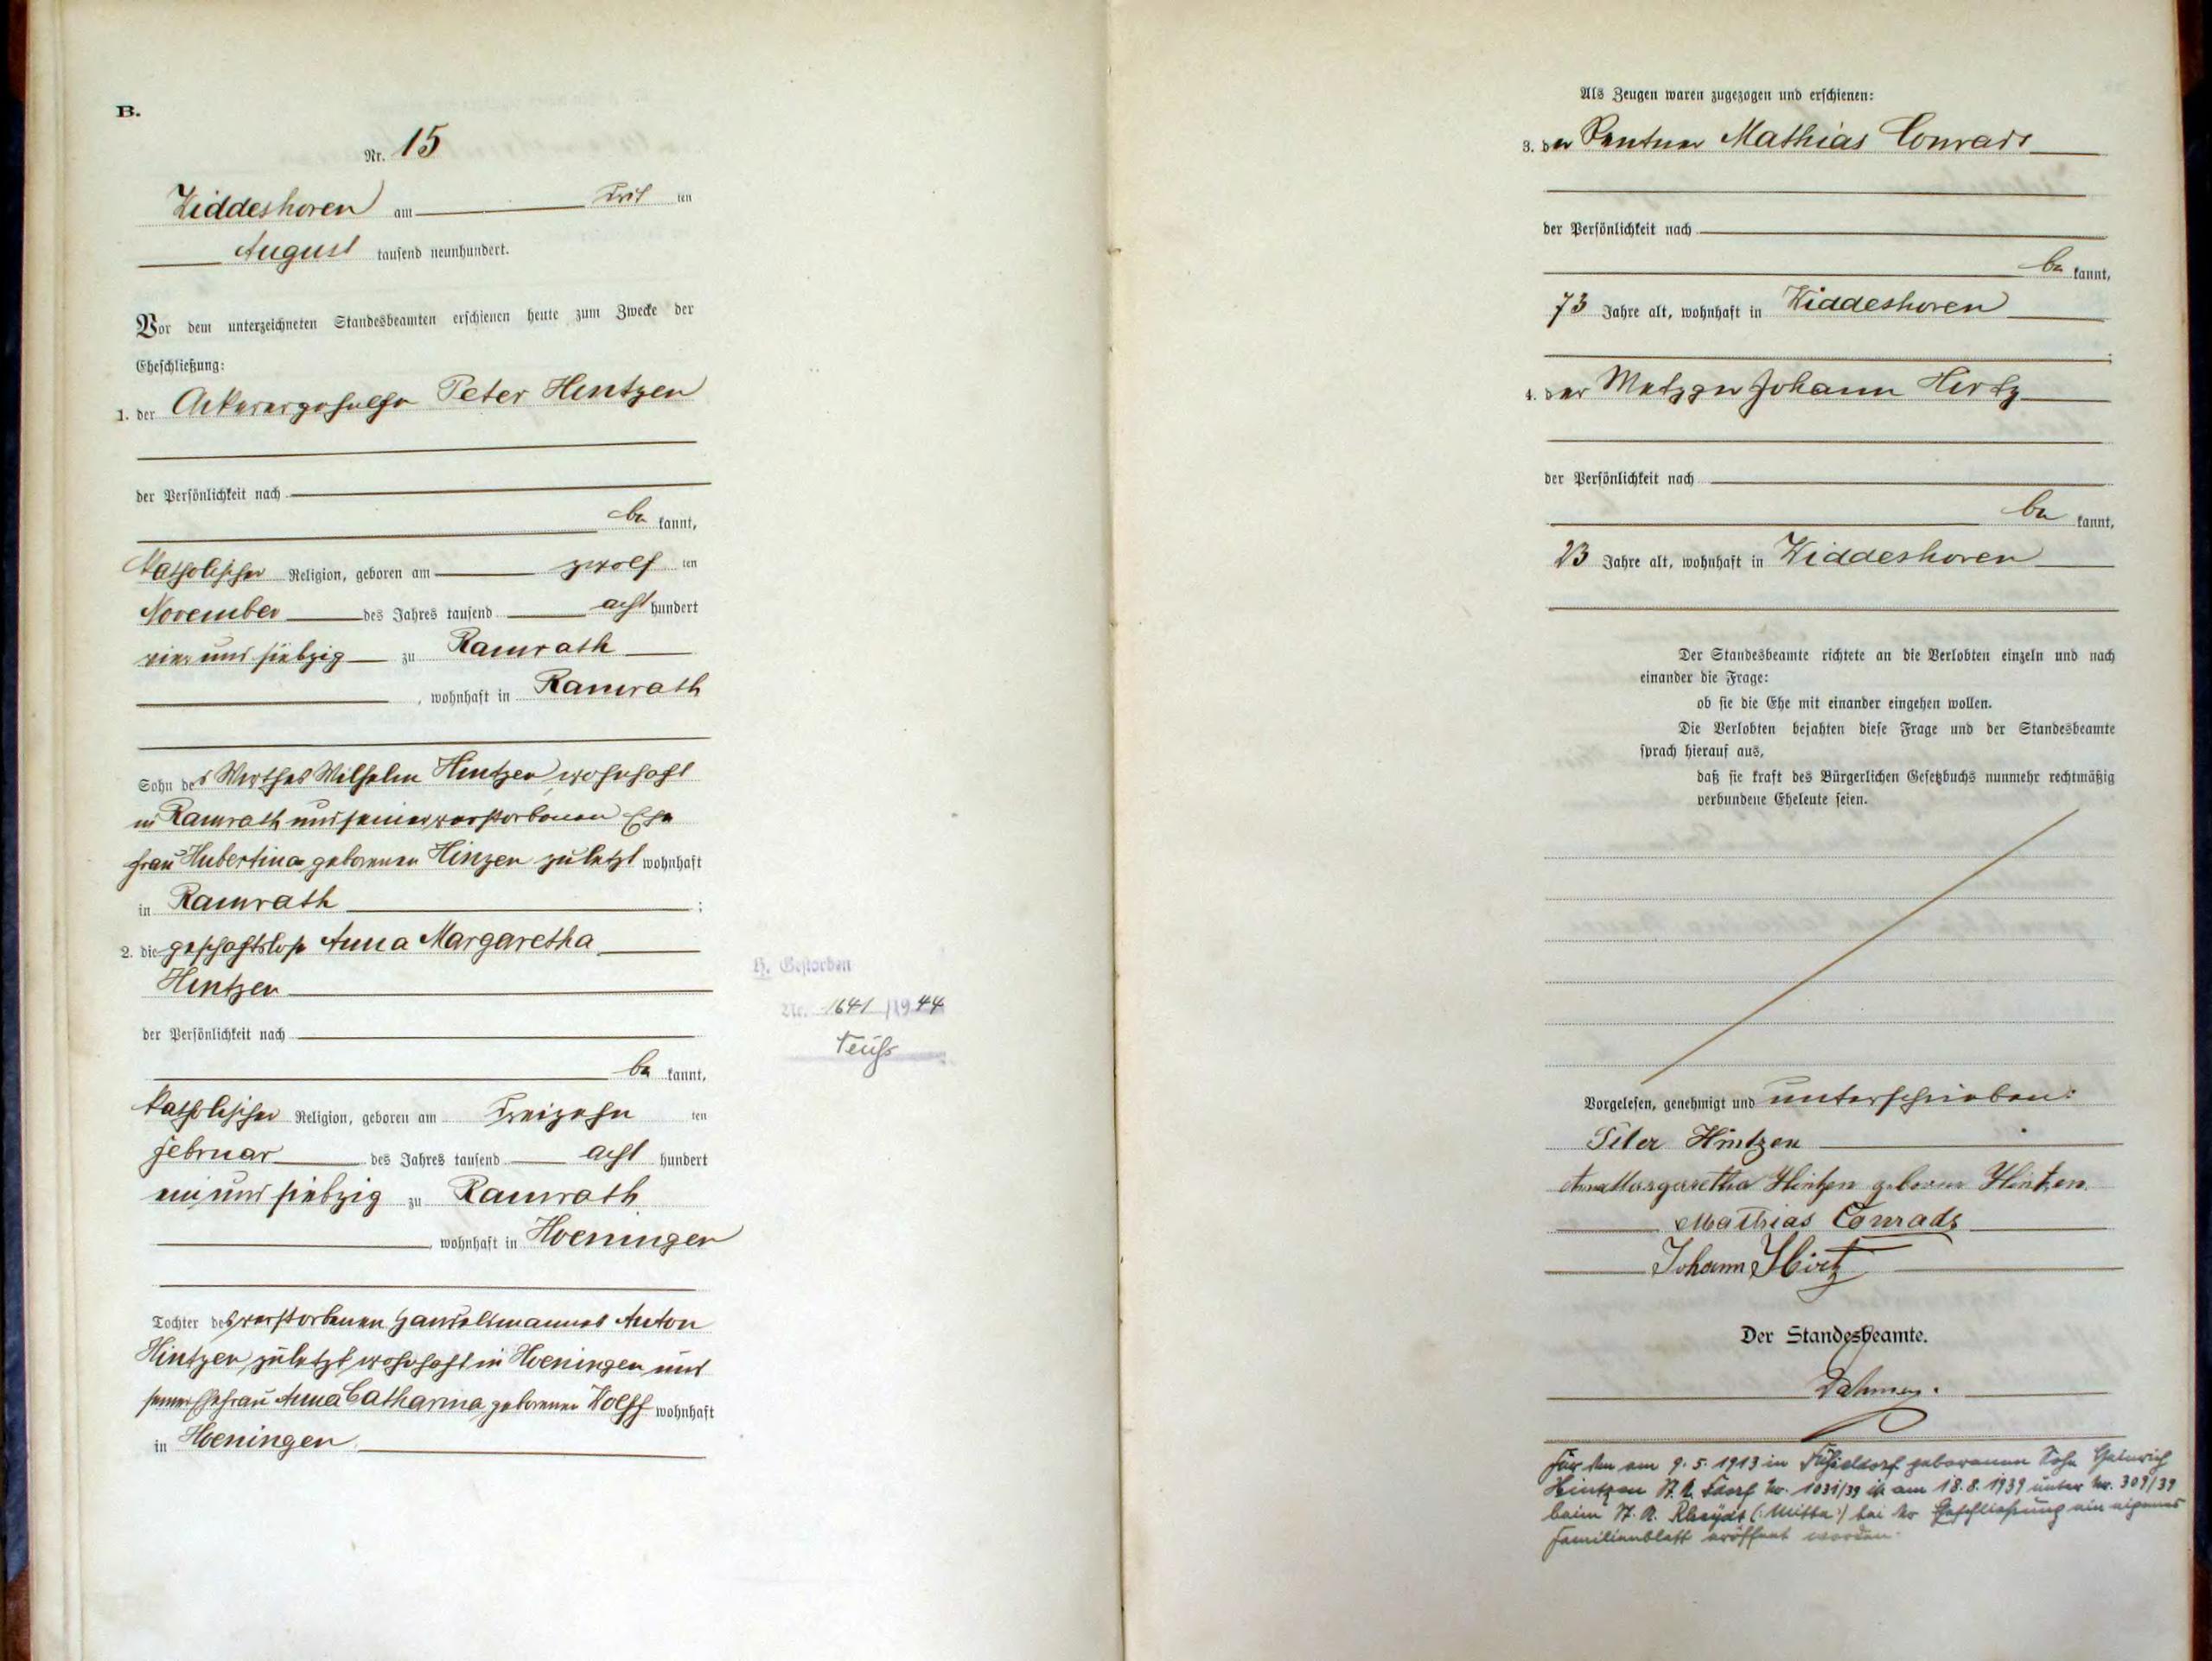 B.
Nr. 15
Widdeshoven am drit ten
August tausend neunhundert.
Vor dem unterzeichneten Standesbeamten erschienen heute zum Zwecke der
Eheschließung:
1. der Ackerergehülfe Peter Hintzen
der Persönlichkeit nach
be kannt,
katholischer Religion, geboren am zwölf ten
November des Jahres tausend acht hundert
vier und siebzig zu Ramrath
, wohnhaft in Ramrath
Sohn des Wirthes Wilhelm Hintzen wohnhaft
in Ramrath und seiner verstorbenen Ehe
frau Hubertina geborenen Hinzen zuletzt wohnhaft
in Ramrath ;
2. die geschäftslose Anna Margaretha
Hintzen
der Persönlichkeit nach
be kannt,
katholischer Religion, geboren am dreizehn ten
Februar des Jahres tausend acht hundert
ein und siebzig zu Ramrath
, wohnhaft in Hoeningen
Tochter des verstorbenen Handelsmannes Anton
Hintzen zuletzt wohnhaft in Hoeningen und
seiner Ehefrau Anna Catharina geborenen Wolff wohnhaft
in Hoeningen
H. Gestorben
Nr. 1641/1944
Als Zeugen waren zugezogen und erschienen:
3. der Rentner Mathias Conrads
der Persönlichkeit nach
be kannt,
73 Jahre alt, wohnhaft in Widdeshoven
;
4. der Metzger Johann Hirtz
der Persönlichkeit nach
be kannt,
23 Jahre alt, wohnhaft in Widdeshoven
Der Standesbeamte richtete an die Verlobten einzeln und nach
einander die Frage:
ob sie die Ehe mit einander eingehen wollen.
Die Verlobten bejahten diese Frage und der Standesbeamte
sprach hierauf aus,
daß sie kraft des Bürgerlichen Gesetzbuchs nunmehr rechtmäßig
verbundene Eheleute seien.
Vorgelesen, genehmigt und unterschrieben:
Peter Hintzen
Anna Margaretha Hintzen geboren Hintzen.
Mathias Conrads
Johann Hirtz
Der Standesbeamte.
Dahmen.
Für den am 9.5.1913 in Düsseldorf geborenen Sohn Heinrich
Hintzen St. A. Ddorf Nr. 1031/39 ist am 18.8.1939 unter Nr. 309/39
beim St. A. Rheydt (Mitte) bei der Eheschließung ein eigenes
Familienblatt eröffnet worden.